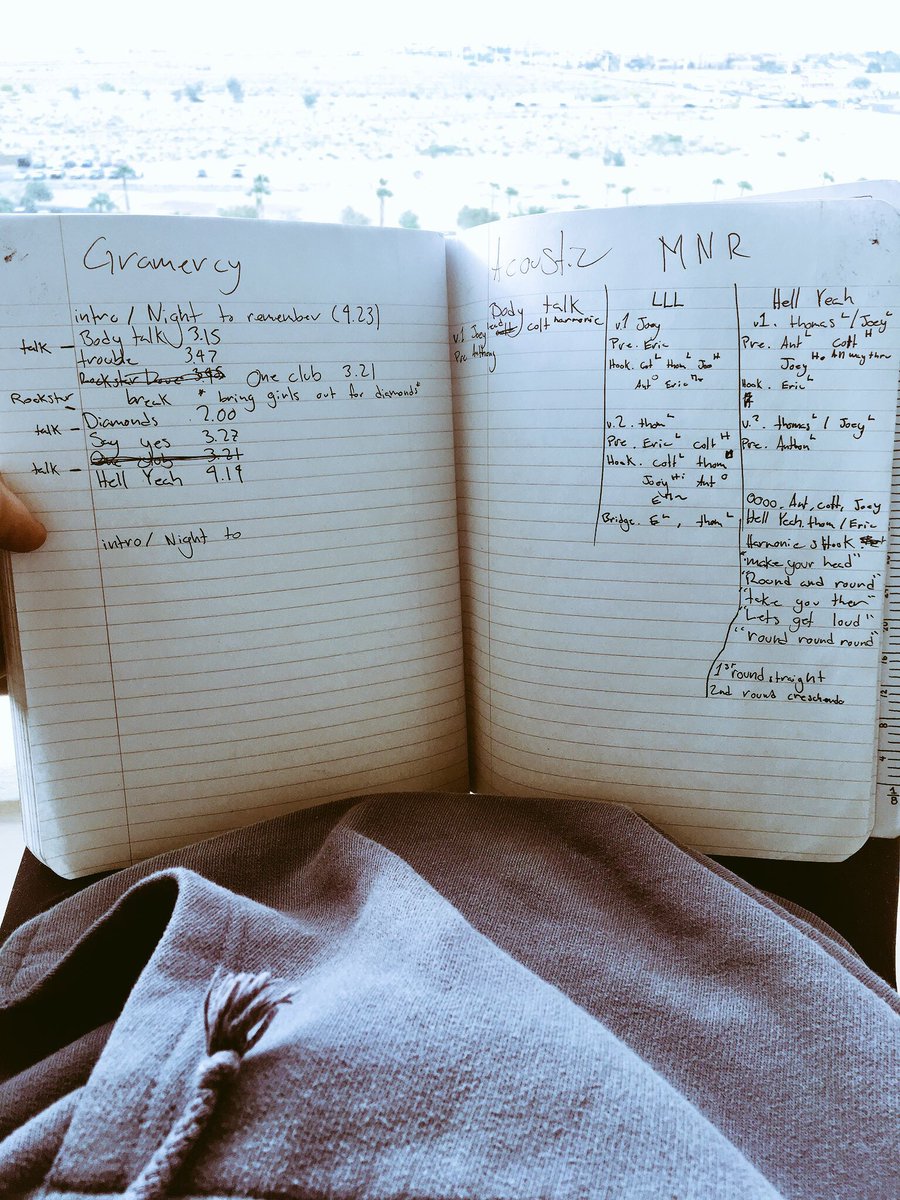 Gramercy
intro / Night to remember (4.23)
talk - Body talk 3.15
trouble 3.47
Rockstar Dave 3.45 One club 3.21
Rockstar - break * bring girls out for diamonds*
Diamonds 2.00
talk - Say yes 3.22
One club 3.21
talk - Hell Yeah 4.19
intro / Night to
Acoustic MNR
Body talk
v.1 Joey lead / colt harmonic
Pre. Anthony
LLL
v.1 Joey
Pre. Eric
Hook. Colt L thom L Joe H
Ant O Eric
v.2. thom L
Pre. Eric L colt H
Hook. colt L thom
Joey Hi Ant O
E
Bridge. E L, thom L
Hell Yeah
v.1. thomas L / Joey L
Pre. Ant L colt H
Joey H All way thru
Hook. Eric L
v.2. thomas L / Joey L
Pre. Anthon L
Oooo. Ant, colt, Joey
Hell Yeah. thom / Eric
Harmonics Hook.
"make your head"
"Round and round"
"take you ther"
"Lets get loud"
"round round round"
1st round straight
2nd round creshendo
8
12
4
1/8